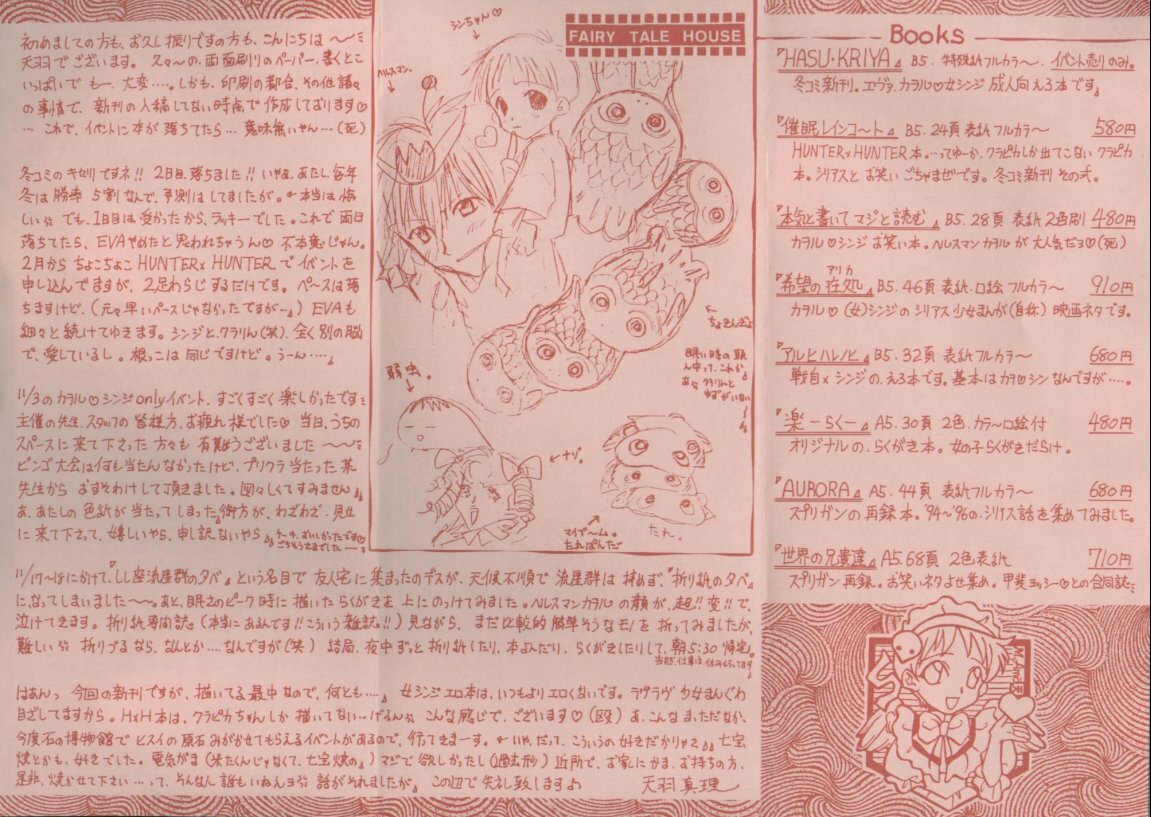 初めましての方も、お久し振りですの方も、こんにちは〜〜
天羽でございます。久々〜の、両面刷りのペーパー、書くとこ
いっぱいで も一 大変…。しかも、印刷の都合、その他諸々
の事情で、新刊の入稿してない時点で作成しております♡
… これで、イベントに本が落ちてたら… 意味無いやん…(死)
冬コミのキセツですネ!! 2日目、落ちました!! いやぁ、あたし、毎年
冬は勝率5割なんで、予測はしてましたが。←本当は悔
しい でも、1日目は受かったから、ラッキーでした。これで両日
落ちてたら、EVAやめたと思われちゃうん♡ 不本意じゃん。
2月からちょこちょこHUNTER×HUNTERでイベントを
申し込んでますが、2足わらじするだけです。ペースは落
ちますけど、(元々早いペースじゃなかったですが…) EVAも
細々と続けてゆきます。シンジと、クラりん(笑)、全く別の脳
で、愛しているし。根っこは同じですけど。うーん…。
11/3のカヲル♡シンジonlyイベント、すごくすごく楽しかったです
主催の先生、スタッフの皆様方、お疲れ様でした♡ 当日、うちの
スペースに来て下さった方々も有難うございました〜〜
ビンゴ大会は何も当たんなかったけど、プリクラ当たった某
先生からおすそわけして頂きました。図々しくてすみません
あ、あたしの色紙が当たってしまった御方が、わざわざ、見せ
に来て下さって、嬉しいやら、申し訳ないやら
ケーキ、おいしかったです♡
ごちそうさまでした
11/17〜18にかけて、『しし座流星群の夕べ』という名目で友人宅に集まったのデスが、天候不順で流星群は拝めず、『折り紙の夕べ』
になってしまいました〜〜。あと、眠さのピーク時に描いたらくがきを上にのっけてみました。ヘルスマンカヲルの顔が、超!!変!!で、
泣けてきます。折り紙専門誌(本当にあるんです!!こういう雑誌!!)見ながら、まだ比較的簡単そうなモノを折ってみましたが、
難しい 折りづるなら、なんとか…なんですが(笑) 結局、夜中ずっと折り紙したり、本よんだり、らくがきしたりして、朝5:30帰宅。
当然、仕事は、休みもらってます
はぁんっ 今回の新刊ですが、描いてる最中なので、何とも…。女シンジエロ本は、いつもよりエロくないです。ラヴラヴ少女まんぐわ
目ざしてますから。H×H本は、クラピカちゃんしか描いてない…げふん こんな感じで、ございます♡(殴) あ、こんなまっただなか、
今度石の博物館でヒスイの原石みがかせてもらえるイベントがあるので、行ってきまーす。←いや、だって、こういうの好きだから 七宝
焼とかも、好きでした。電気がま(米たくんじゃなくて、七宝焼の)マジで欲しかったし(過去形)近所で、お家にかま、お持ちの方、
是非、焼かせて下さい…って、そんなん誰もいねぇヨ 話がそれましたが、この辺で失礼致します♪ 天羽真理
シンちゃん♡
ヘルスマン。
FAIRY TALE HOUSE
ちょきんぎょ
眠い時の頭
ん中って、これか。
あ クラりんと
ゆずがいない
弱虫。
ナゾ。
マイブーム。
たれぱんだ
たれ。
Books
『HASU・KRIYA』 B5. 特殊紙フルカラ〜. イベント売りのみ。
冬コミ新刊。エヴァ、カヲル♡女シンジ 成人向えろ本です。
『催眠レインコ〜ト』 B5. 24頁 表紙フルカラ〜 580円
HUNTER×HUNTER本。…ってゆーか、クラピカしか出てこないクラピカ
本。シリアスとお笑いごちゃまぜです。冬コミ新刊その弐。
『本気と書いてマジと読む』 B5. 28頁 表紙2色刷 480円
カヲル♡シンジお笑い本。ヘルスマンカヲルが大人気だヨ♡(死)
『希望の在処』 B5. 46頁 表紙・口絵フルカラ〜 910円
アリカ
カヲル♡(女)シンジのシリアス少女まんが(自称) 映画ネタです。
『アルヒハレノヒ』 B5. 32頁 表紙フルカラ〜 680円
戦自×シンジの、えろ本です。基本はカヲシンなんですが…。
『楽－らく－』 A5. 30頁 2色. カラ〜口絵付 480円
オリジナルの、らくがき本。女の子らくがきだらけ。
『AURORA』 A5. 44頁 表紙フルカラ〜 680円
スプリガンの再録本。'94〜'96の、シリアス話を集めてみました。
『世界の兄貴達』 A5. 68頁 2色表紙 710円
スプリガン再録。お笑いネタよせ集め。甲斐ヨッシー♡との合同誌